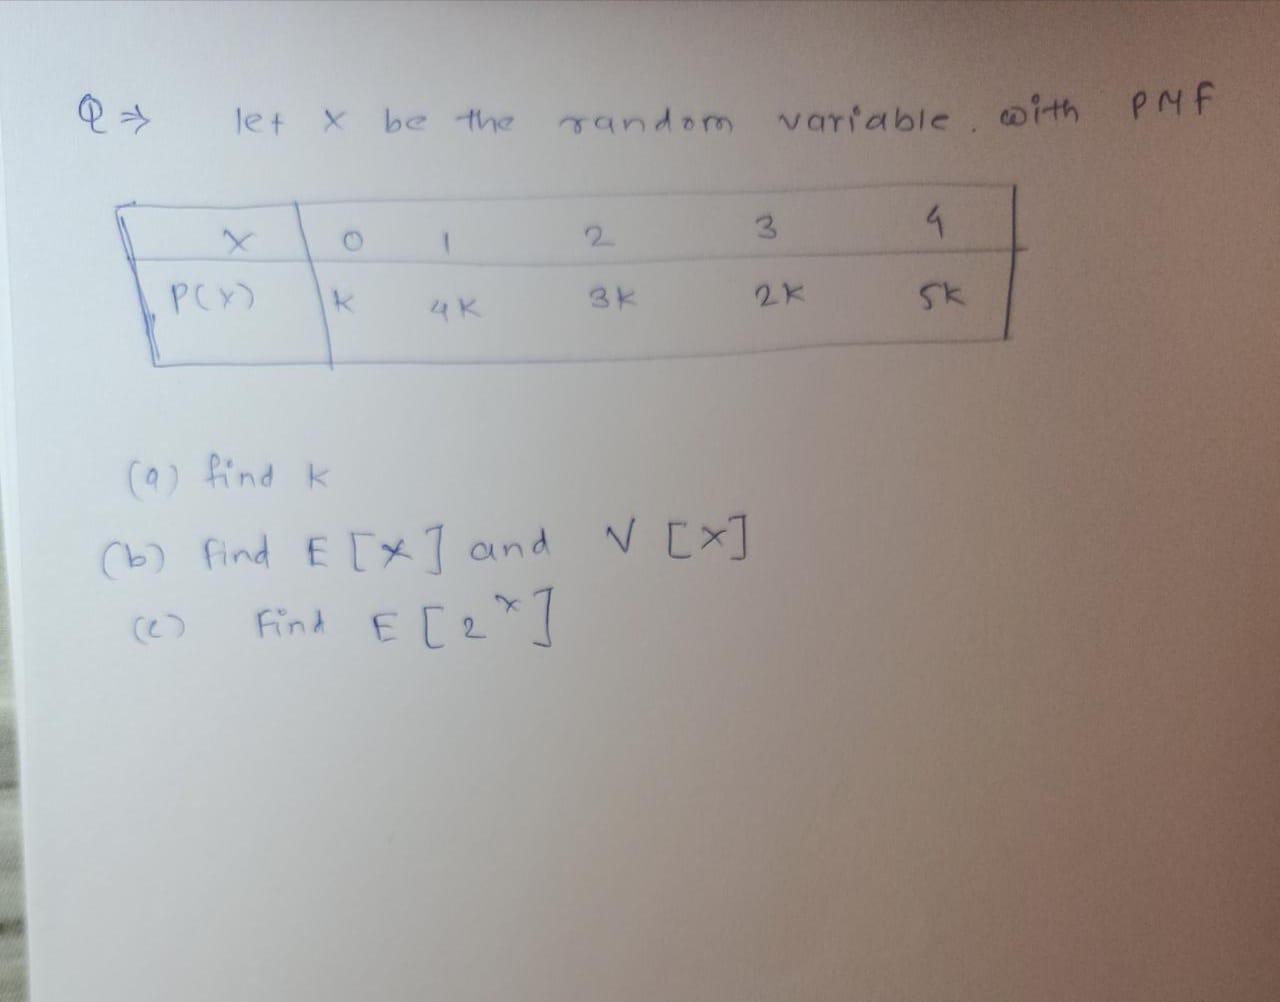 Q ⇒ let x be the random variable. with PMF
X 0 1 2 3 4
P(X) k 4K 3K 2K 5K
(a) find k
(b) find E [X] and V [X]
(c) Find E [2^x]